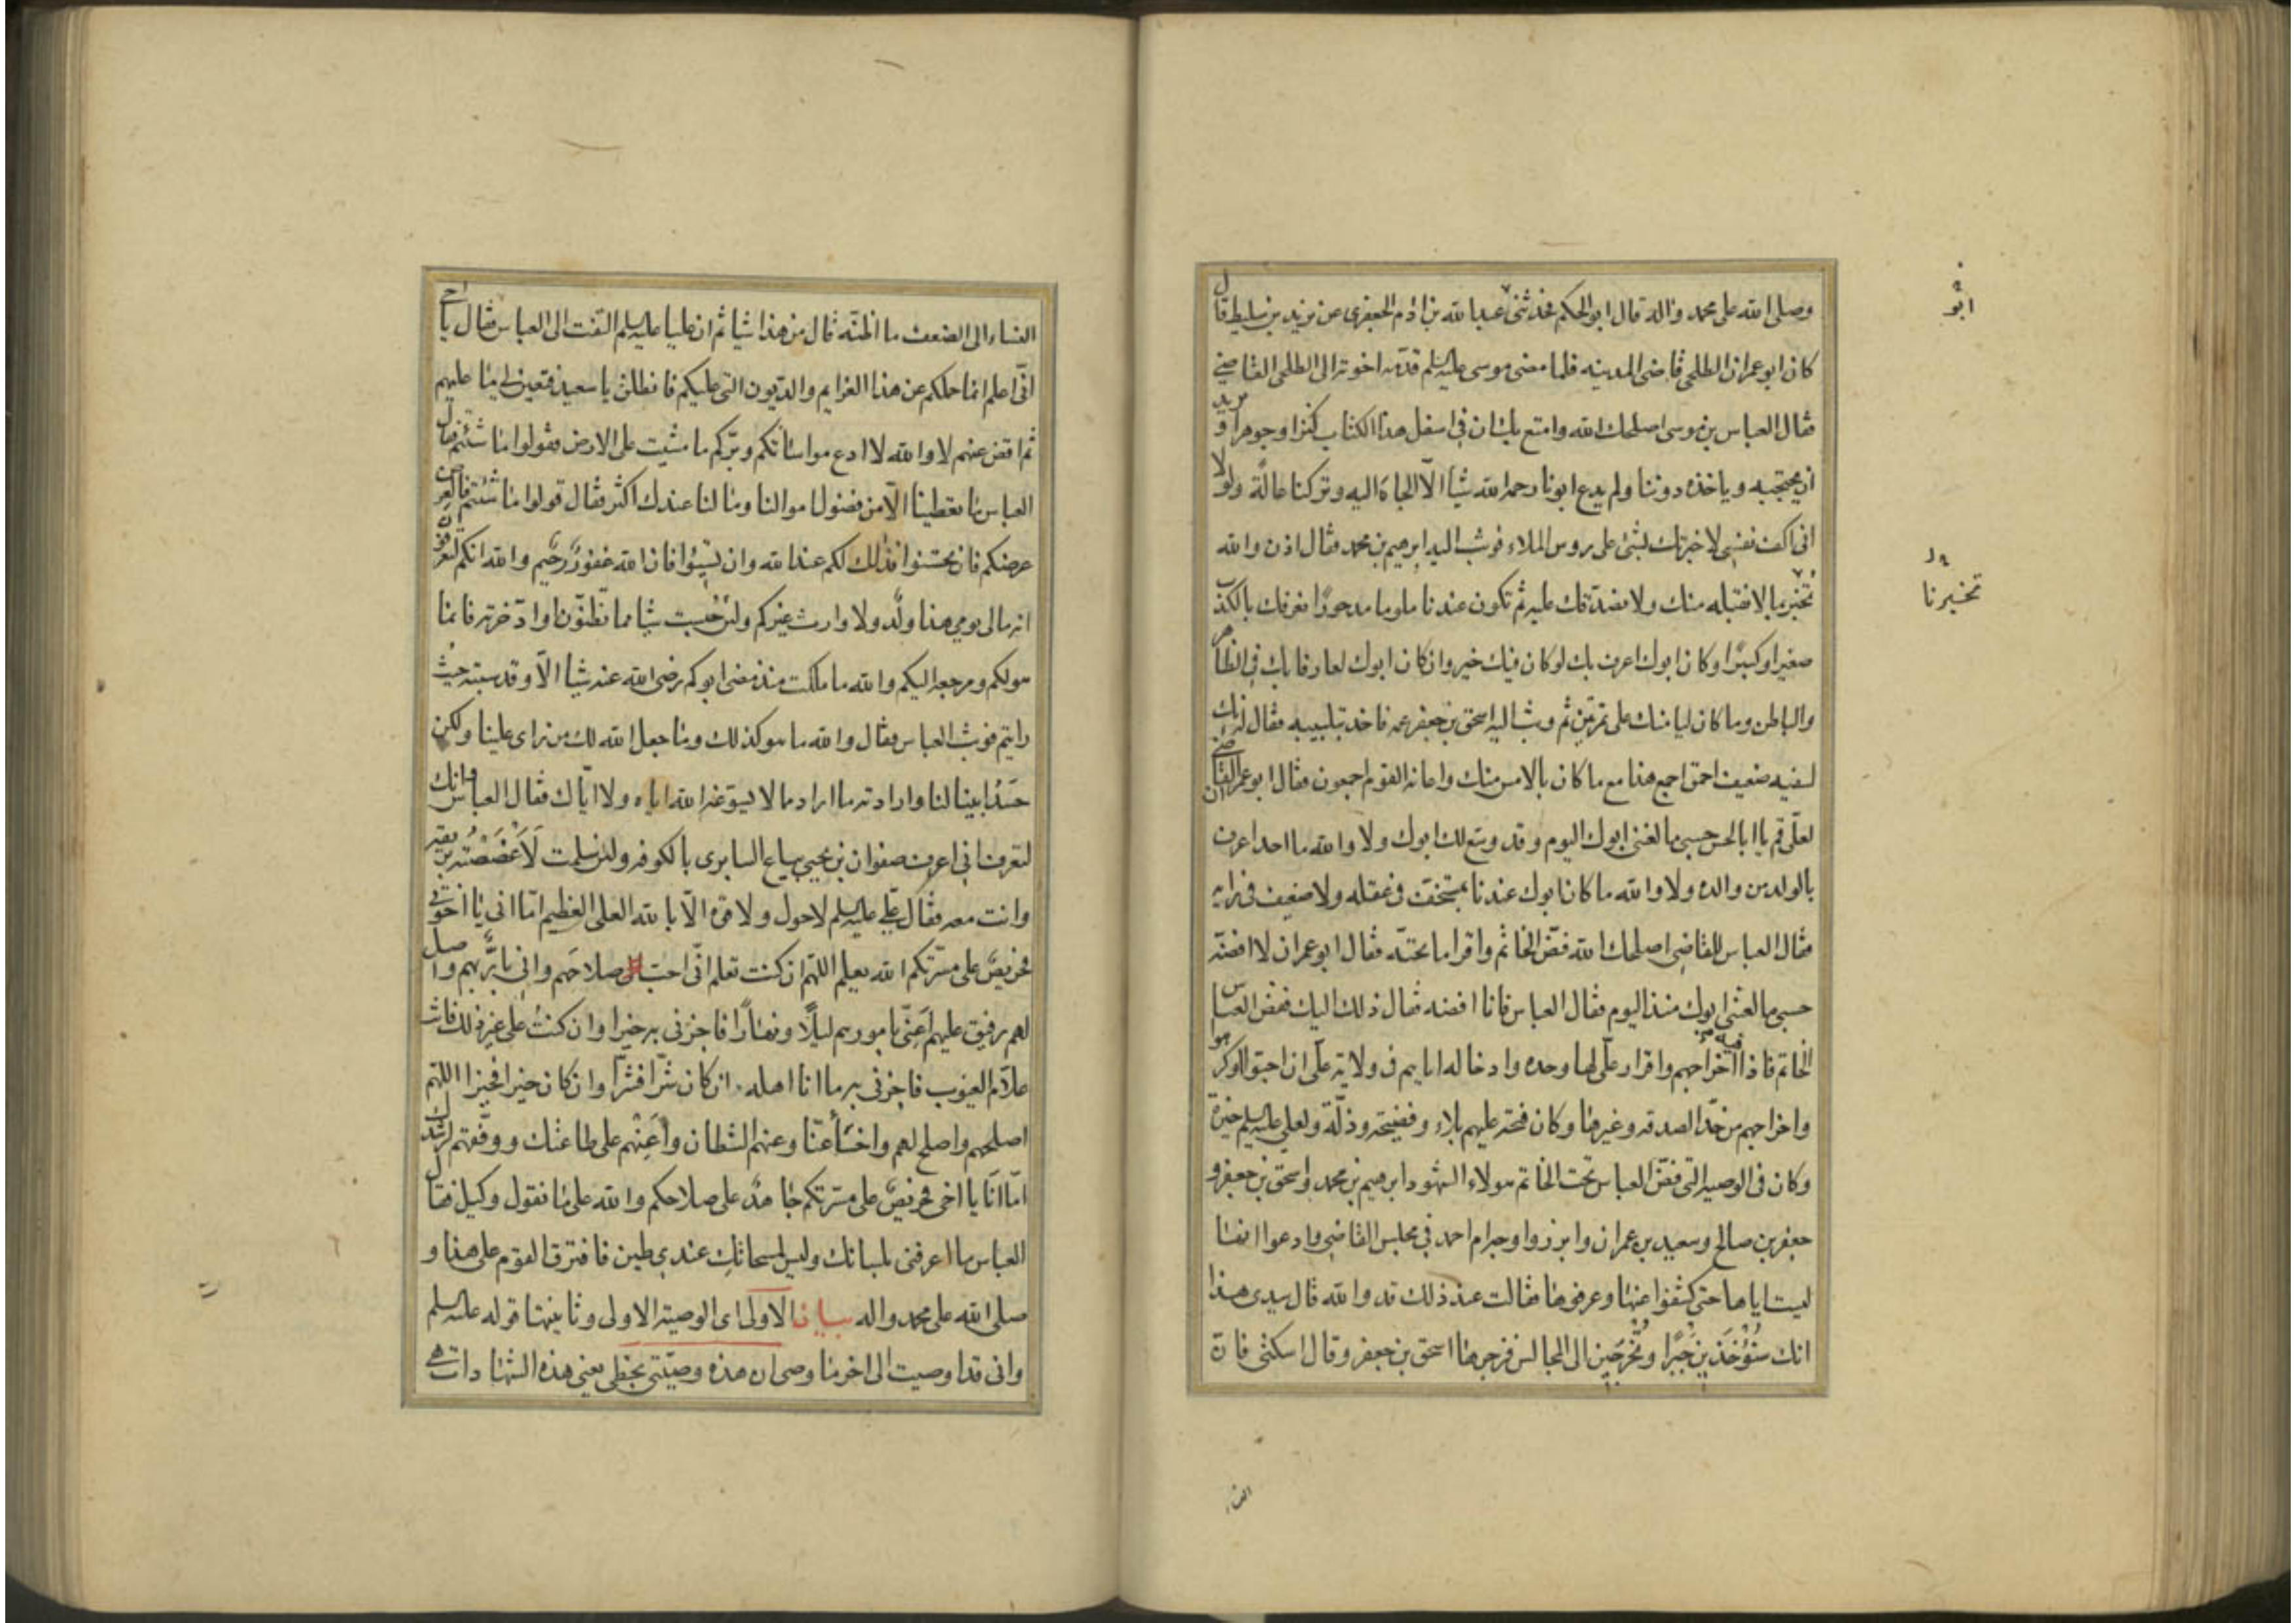 وصلى الله على محمد واله قال ابو الحكم فحدثنى عبد الله بن ادم الجعفرى عن يزيد بن سليط قال
كان ابو عمران الطلحى قاضى المدينه فلما مضى موسى عليه السلم قدمه اخوته الى الطلحى القاضى
فقال العباس بن موسى اصلحك الله وامتع بك ان فى اسفل هذا الكتاب كنزا وجوهرا ويريد
ان يحتجبه وياخذه دوننا ولم يدع ابونا رحمه الله شيأ الّا الجاه اليه وتركنا عالةً ولولا
انى اكف نفسى لاخبرتك بشئ على رؤس الملاء فوثب اليه ابرهيم بن محمد فقال اذن والله
تخبر بما لا نقبله منك ولا نصدقك عليه ثم تكون عندنا ملوما مدحورًا نعرفك بالكذب
صغيرا وكبيرًا وكان ابوك اعرف بك لوكان فيك خير وان كان ابوك لعارفا بك فى الظاهر
والباطن وما كان ليامنك على تمرتين ثم وثب اليه اسحق بن جعفر عمه فاخذ بتلبيبه فقال له انك
لسفيه ضعيف احمق اجمع هذا مع ما كان بالامس منك واعانه القوم اجمعون فقال ابو عمران القاضى
لعلّى قم يا ابا الحسن حسبى ما لعننى ابوك اليوم وقد وسّع لك ابوك ولا والله ما احد اعرف
بالولد من والده ولا والله ما كان ابوك عندنا بمستخفّ فى عقله ولا ضعيف فى رايه
فقال العباس للقاضى اصلحك الله فضّ الخاتم واقرا ما تحته فقال ابو عمران لا افضه
حسبى ما لعننى ابوك منذ اليوم فقال العباس فانا افضه فقال ذلك اليك ففض العباس
الخاتم فاذا فيه اخراجهم واقرار علّى لها وحده وادخاله اياهم فى ولاية علّى ان احبوا او كرهوا
واخراجهم من حدّ الصدقه وغيرها وكان فتحه عليهم بلاء وفضيحة وذلّة ولعلى عليه السلم خيرة
وكان فى الوصيه التى فضّ العباس تحت الخاتم هولاء الشهود ابرهيم بن محمد واسحق بن جعفر و
جعفر بن صالح وسعيد بن عمران وابرزوا وجه ام احمد فى مجلس القاضى وادعوا انها
ليست اياها حتى كشفوا عنها وعرفوها فقالت عند ذلك قد والله قال سيدى هذا
انك ستؤخذين جبرًا وتخرجين الى المجالس فزجرها اسحق بن جعفر وقال اسكتى فان
ابو
تخبرنا
النساء الى الضعف ما اظنه قال من هذا شيأ ثم ان عليا عليه السلم التفت الى العباس فقال يا اخى
انّى اعلم انما حملكم عن هذا الغرايم والديون التى عليكم فانطلق يا سعيد فتعين لى ما عليهم
ثم اقض عنهم لا والله لا ادع مواساتكم وبرّكم ما مشيت على الارض فقولوا ما شئتم فقال
العباس ما تعطينا الّا من فضول اموالنا وما لنا عندك اكثر فقال قولوا ما شئتم فالعرض
عرضكم فان تحسنوا فذلك لكم عند الله وان تسيئوا فان الله غفورٌ رحيم والله انكم لتعرفون
انه مالى يومى هذا ولد ولا وارث غيركم ولئن حبست شيأ مما تظنون او ادخرته فانما
هو لكم ومرجعه اليكم والله ما ملكت منذ مضى ابوكم رضى الله عنه شيأ الّا وقد سيبته حيث
رايتم فوثب العباس فقال والله ما هو كذلك وما جعل الله لك من راى علينا ولكن
حسد ابينا لنا وارادته ما اراد مما لا يسوغه الله اياه ولا اياك فقال العباس وانك
لتعرف انى اعرف صفوان بن يحيى بياع السابرى بالكوفه ولئن سلمت لاغصصنه بريقه
وانت معه فقال على عليه السلم لا حول ولا قوه الّا بالله العلى العظيم امّا انى يا اخوتى
فحريصٌ على مسرّتكم الله يعلم اللهم ان كنت تعلم انّى احبّ صلاحهم وانى بارٌّ بهم واصل
لهم رفيق عليهم اعنى بامورهم ليلًا ونهارًا فاجزنى به خيرا وان كنتُ على غير ذلك فانت
علّام الغيوب فاجزنى به ما انا اهله ان كان شرّا فشرّا وان كان خيرا فخيرا اللهم
اصلحهم واصلح لهم واخسأ عنّا وعنهم الشطان واعنهم على طاعتك ووفقهم لرشدك
امّا انا يا اخى فحريصٌ على مسرّتكم جاهدٌ على صلاحكم والله على ما نقول وكيل فقال
العباس ما اعرفنى بلسانك وليس لمسحاتك عندى طين فافترق القوم على هذا و
صلى الله على محمد واله بيان الاولى اى الوصية الاولى وثانيتها قوله عليه السلم
وانى قد اوصيت الى اخرها وصى ان هذه وصيّتى بخطى يعنى هذه الشهادات هى